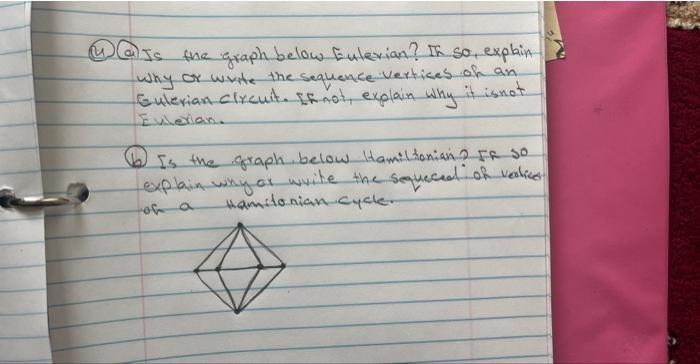 4 a Is the graph below Eulerian? If so, explain
why or write the sequence vertices of an
Eulerian circuit. If not, explain why it isnot
Eulerian.
b Is the graph below Hamiltonian? If so
explain why or write the sequeced of vertices
of a Hamiltonian cycle.